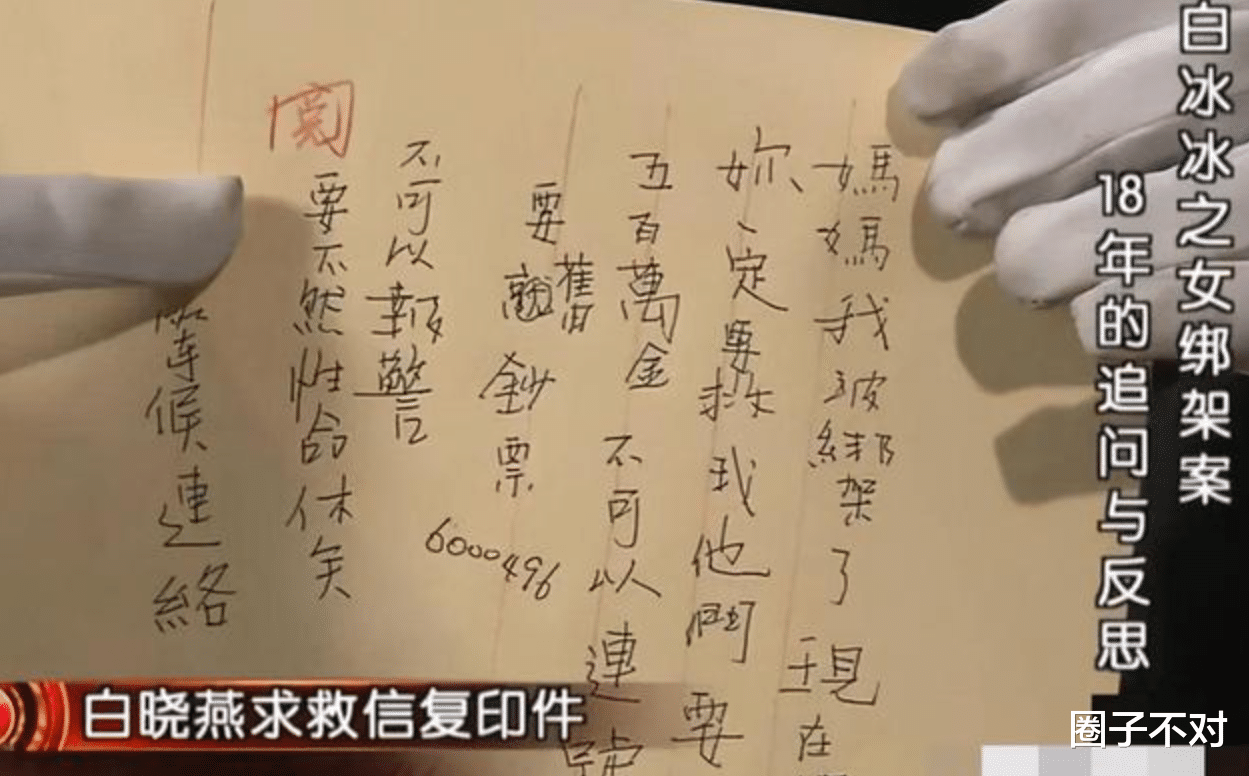 白冰冰之女绑架案
18年的追问与反思
媽媽我被綁架了現在
妳一定要救我他們要
五百萬金不可以連號
要舊鈔票
6000496
不可以報警
要不然性命休矣
等候連絡
白晓燕求救信复印件
圈子不对